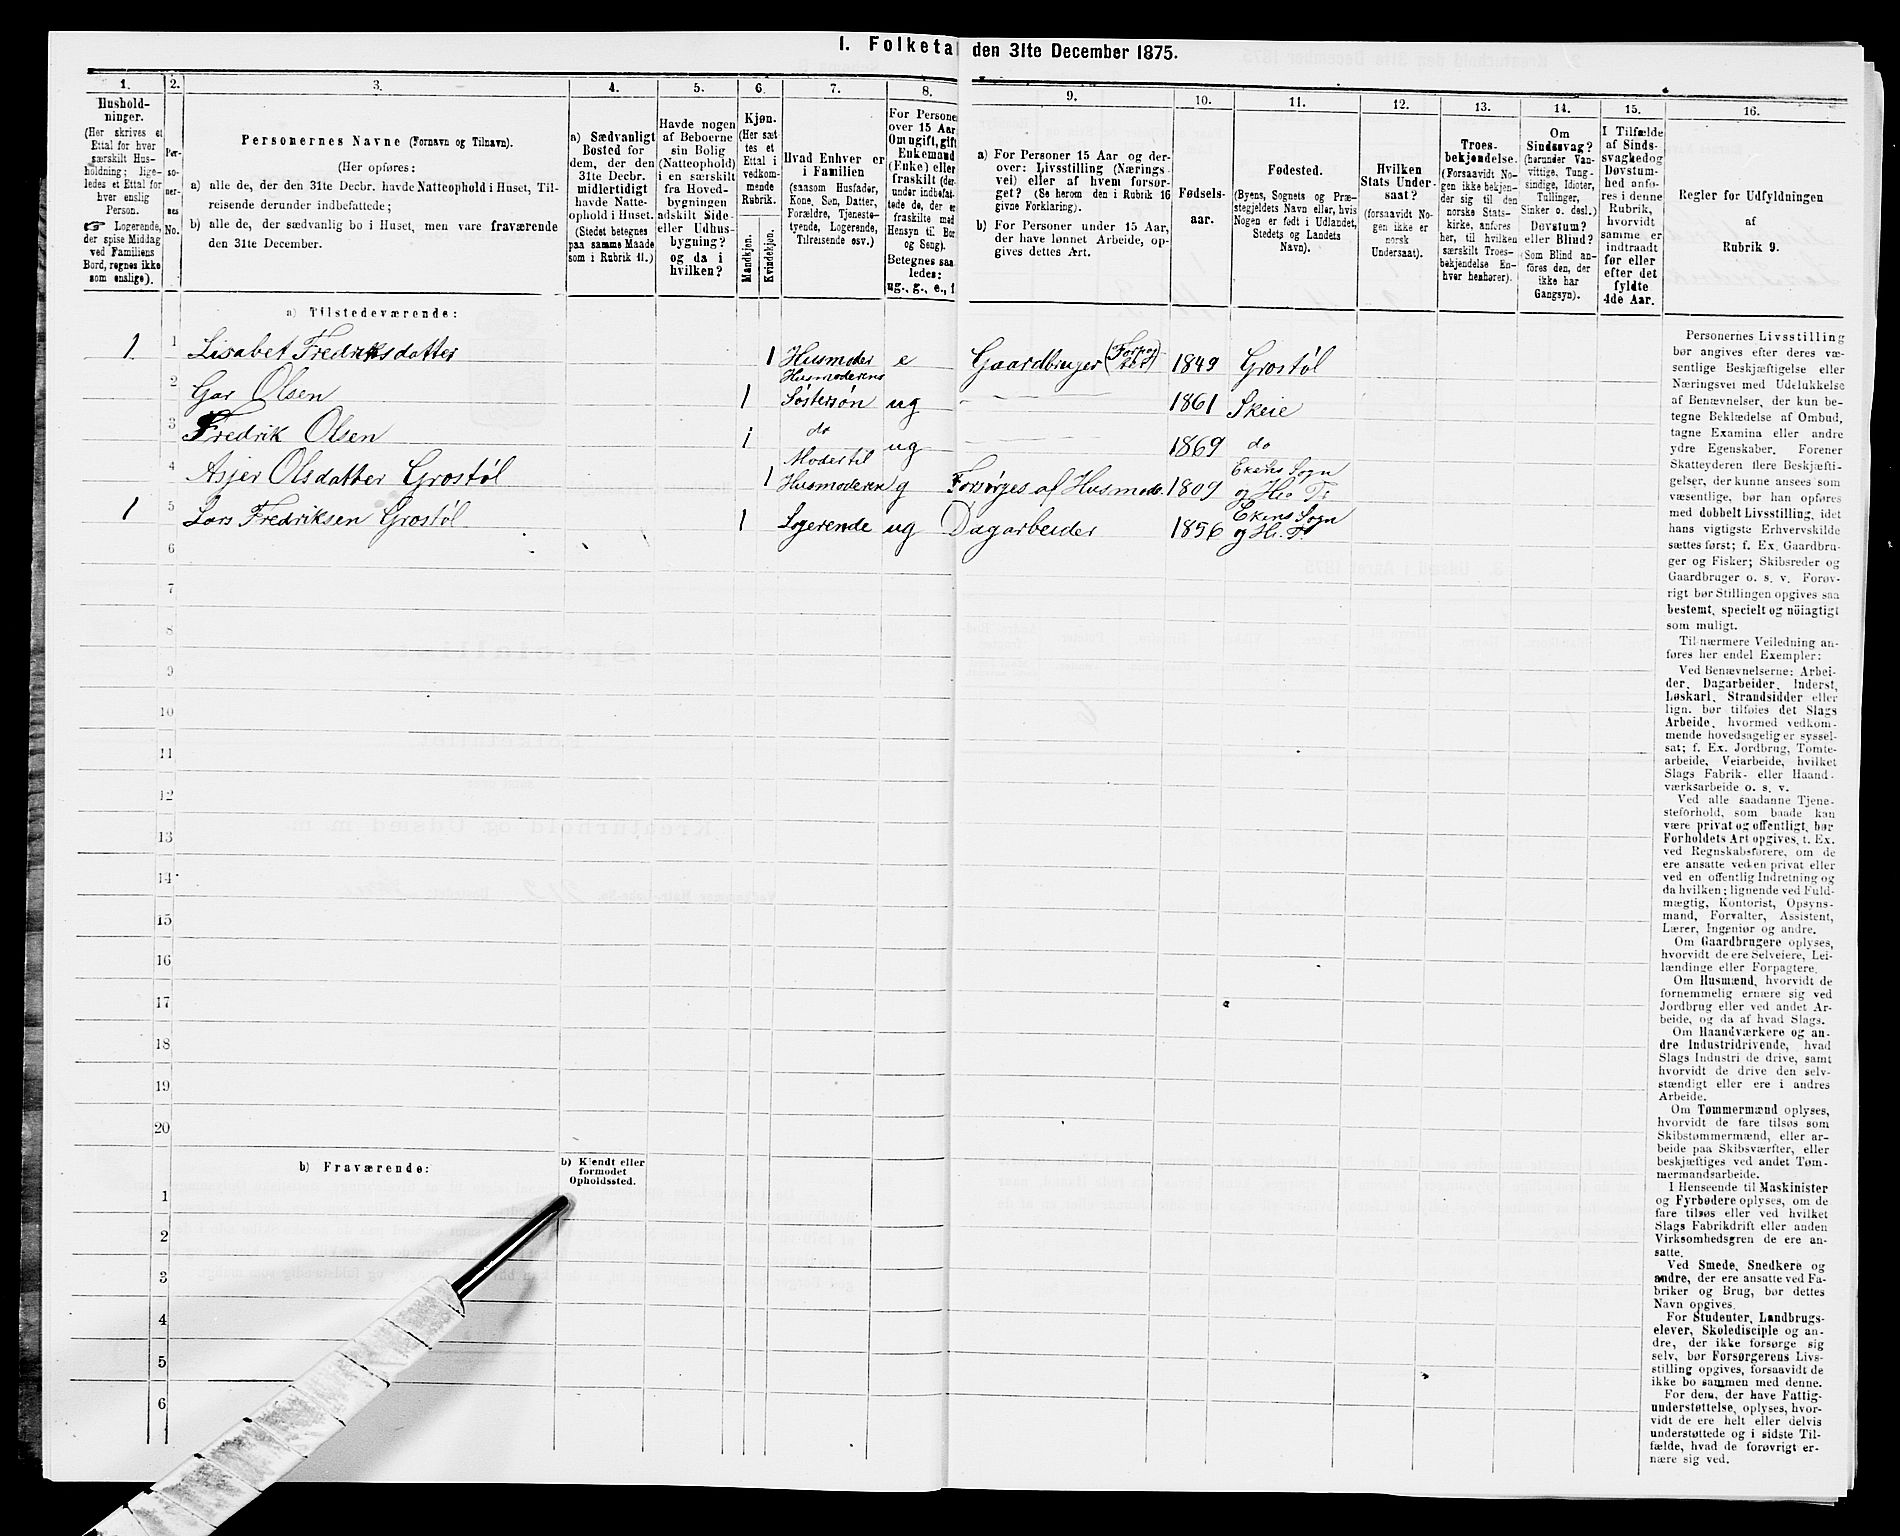 I. Folketal den 31te December 1875.
1. 2. 3. 4. 5. 6. 7. 8. 9. 10. 11. 12. 13. 14. 15. 16.
Hushold-
ninger.
(Her skrives et
Ettal for hver
særskilt Hus-
holdning; lige-
ledes et Ettal for
hver enslig
Person.
☞ Logerende,
der spise Middag
ved Familiens
Bord, regnes ikke
som enslige).
Per-
so-
ner-
nes
No.
Personernes Navne (Fornavn og Tilnavn).
(Her opføres:
a) alle de, der den 31te Decbr. havde Natteophold i Huset, Til-
reisende derunder indbefattede;
b) alle de, der sædvanlig bo i Huset, men vare fraværende
den 31te December.
a) Sædvanligt
Bosted for
dem, der den
31te Decbr.
midlertidigt
havde Natte-
ophold i Huset.
(Stedet betegnes
paa samme Maade
som i Rubrik 11.)
Havde nogen
af Beboerne
sin Bolig
(Natteophold)
i en særskilt
fra Hoved-
bygningen
adskilt Side-
eller Udhus-
bygning?
og da i
hvilken?
Kjøn.
(Her sæt
tes et
Ettal i
vedkom-
mende
Rubrik.
Mandkjøn.
Kvindekjøn.
Hvad Enhver er
i Familien
(saasom Husfader,
Kone, Søn, Datter,
Forældre, Tjeneste-
tyende, Logerende,
Tilreisende osv.)
For Persone
over 15 Aar
Om ugift, gift
Enkemand
(Enke) eller
fraskilt (der-
under indbefat-
tede de, der er
fraskilte med
Hensyn til Bor
og Seng).
Betegnes saa
ledes:
ug., g., e., f.
a) For Personer 15 Aar og der-
over: Livsstilling (Nærings-
vei) eller af hvem forsør-
get? (Se herom den i Rubrik 16
givne Forklaring).
b) For Personer under 15 Aar,
der have lønnet Arbeide, op-
gives dettes Art.
Fødsels-
aar.
Fødested.
(Byens, Sognets og Præ-
stegjeldets Navn eller, hvis
Nogen er født i Udlandet,
Stedets og Landets
Navn).
Hvilken
Stats Under-
saat?
(forsaavidt No-
gen ikke er
norsk
Undersaat).
Troes-
bekjendelse.
(Forsaavidt No-
gen ikke bekjen-
der sig til den
norske Stats-
kirke, anføres
her, til hvilken
særskilt Troes-
bekjendelse En-
hver henhører).
Om
Sindssvag?
(herunder Van-
vittige, Tung-
sindige, Idioter,
Tullinger,
Sinker o. desl.)
Døvstum?
eller Blind?
(Som Blind an-
føres den, der
ikke har
Gangsyn).
I Tilfælde
af Sinds-
svaghed og
Døvstum-
hed anfø-
res i denne
Rubrik,
hvorvidt
samme er
indtraadt
før eller
efter det
fyldte
4de Aar.
Regler for Udfyldningen
af
Rubrik 9.
a) Tilstedeværende:
1 1 Lisabet Fredriksdatter 1 Husmoder e Gaardbruger (Forpagter) 1849 Grostøl
2 Gar Olsen 1 Husmoderens Søstersøn ug 1861 Skeie
3 Fredrik Olsen 1 do ug 1869 do
4 Asjer Olsdatter Grostøl 1 Moder til Husmoderen g Forsørges af Husmode. 1809 Ekens Sogn og
1 5 Lars Fredriksen Grostøl 1 Logerende ug Dagarbeider 1856 Ekens Sogn og
6
7
8
9
10
11
12
13
14
15
16
17
18
19
20
b) Fraværende:
b) Kjendt eller
formodet
Opholdssted.
1
2
3
4
5
6
Personernes Livsstilling
bør angives efter deres væ-
sentlige Beskjæftigelse eller
Næringsvei med Udelukkelse
af Benævnelser, der kun be-
tegne Beklædelse af Ombud,
tagne Examina eller andre
ydre Egenskaber. Forener
Skatteyderen flere Beskjæfti-
gelser, der kunne ansees som
væsentlige, bør han opføres
med dobbelt Livsstilling, idet
hans vigtigste Erhvervskilde
sættes først; f. Ex. Gaardbru-
ger og Fisker; Skibsreder og
Gaardbruger o. s. v. Forøv-
rigt bør Stillingen opgives saa
bestemt, specielt og nøiagtigt
som muligt.
Til nærmere Veiledning an-
føres her endel Exempler:
Ved Benævnelserne: Arbei-
der, Dagarbeider, Inderst,
Løskarl, Strandsidder eller
lign. bør tilføies det Slags
Arbeide, hvormed vedkom-
mende hovedsagelig er syssel-
sat; f. Ex. Jordbrug, Tomte-
arbeide, Veiarbeide, hvilket
Slags Fabrik- eller Haand-
værksarbeide o. s. v.
Ved alle saadanne Tjene-
steforhold, som baade kan
være privat og offentligt, bør
Forholdets Art opgives, t. Ex.
ved Regnskabsførere, om de
ere ansatte ved en privat eller
ved en offentlig Indretning og
da hvilken; lignende ved Fuld-
mægtig, Kontorist, Opsyns-
mand, Forvalter, Assistent,
Lærer, Ingeniør og andre.
Om Gaardbrugere oplyses,
hvorvidt de ere Selveiere, Lei-
lændinge eller Forpagtere.
Om Husmænd, hvorvidt de
fornemmelig ernære sig ved
Jordbrug eller ved andet Ar-
beide, og da af hvad Slags.
Om Haandværkere og an-
dre Industridrivende, hvad
Slags Industri de drive, samt
hvorvidt de drive den selv-
stændigt eller ere i andres
Arbeide.
Om Tømmermænd oplyses,
hvorvidt de fare tilsøs som
Skibstømmermænd, eller ar-
beide paa Skibsværfter, eller
beskjæftiges ved andet Tøm-
mermandsarbeide.
I Henseende til Maskinister
og Fyrbødere oplyses, om de
fare tilsøs eller ved hvilket
Slags Fabrikdrift eller anden
Virksomhedsgren de ere an-
satte.
Ved Smede, Snedkere og
andre, der ere ansatte ved Fa-
briker og Brug, bør dettes
Navn opgives.
For Studenter, Landbrugs-
elever, Skoledisciple og an-
dre, der ikke forsørge sig
selv, bør Forsørgerens Livs-
stilling opgives, forsaavidt de
ikke bo sammen med denne.
For dem, der have Fattig-
understøttelse, oplyses, hvor-
vidt de ere helt eller delvis
understøttede og i sidste Til-
fælde, hvad de forøvrigt er-
nære sig ved.